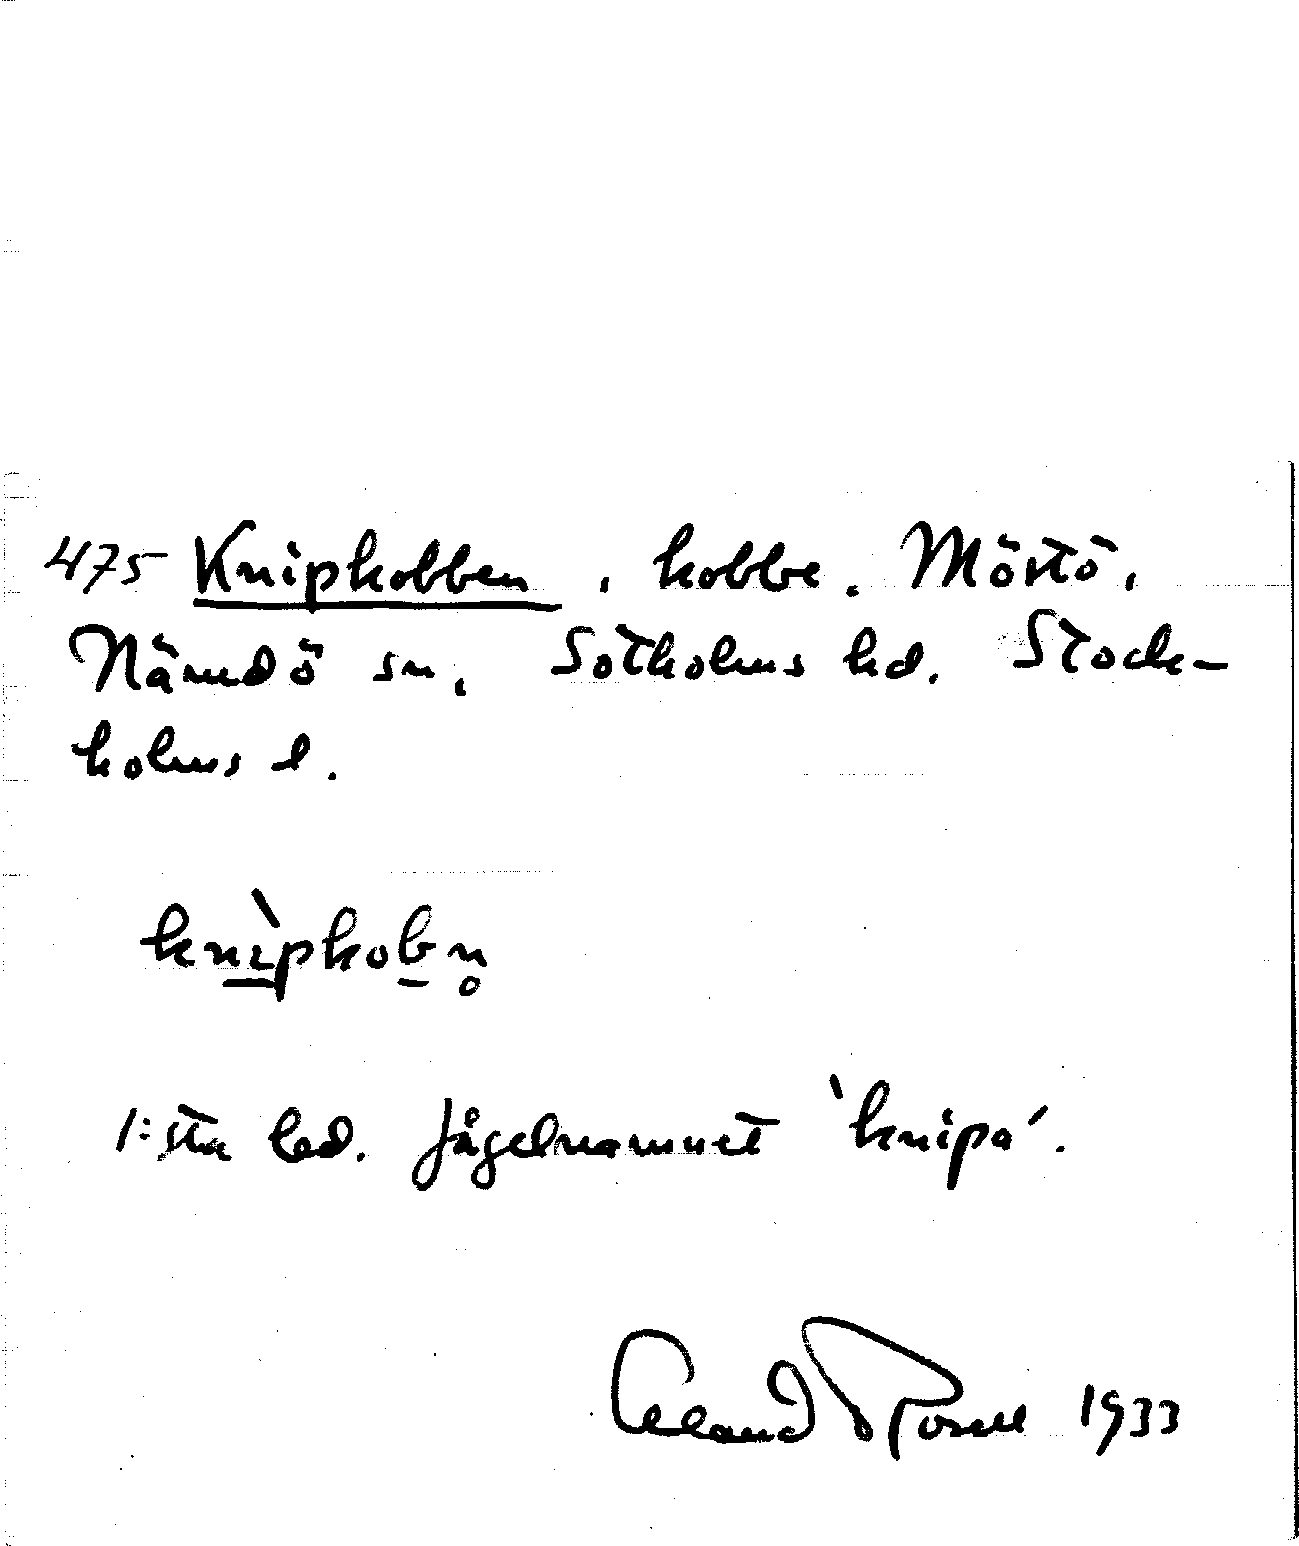 475 Knipkobben, kobbe. Mörtö,
Nämdö sn, Sotholms hd. Stock-
holms l.
knìpkobn̥
1:sta led. fågelnamnet 'knipa'.
1933